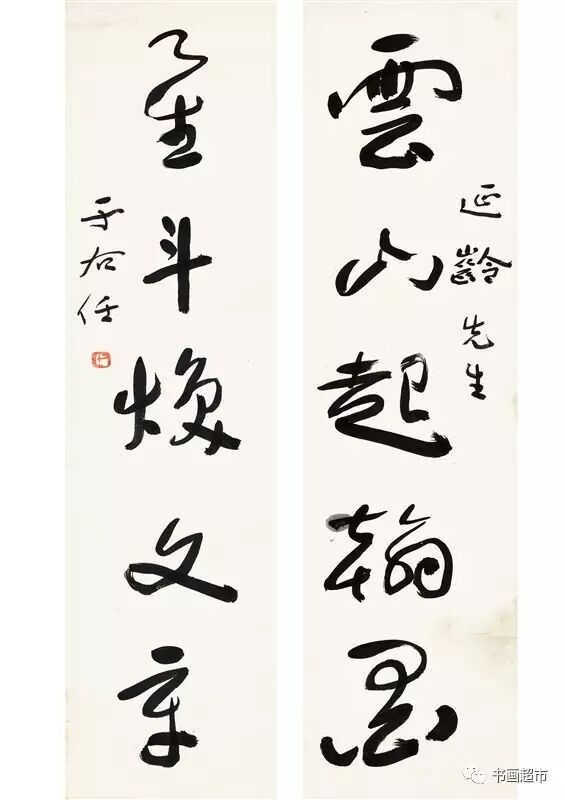 延齡先生
雲山起翰墨
星斗煥文章
于右任
书画超市